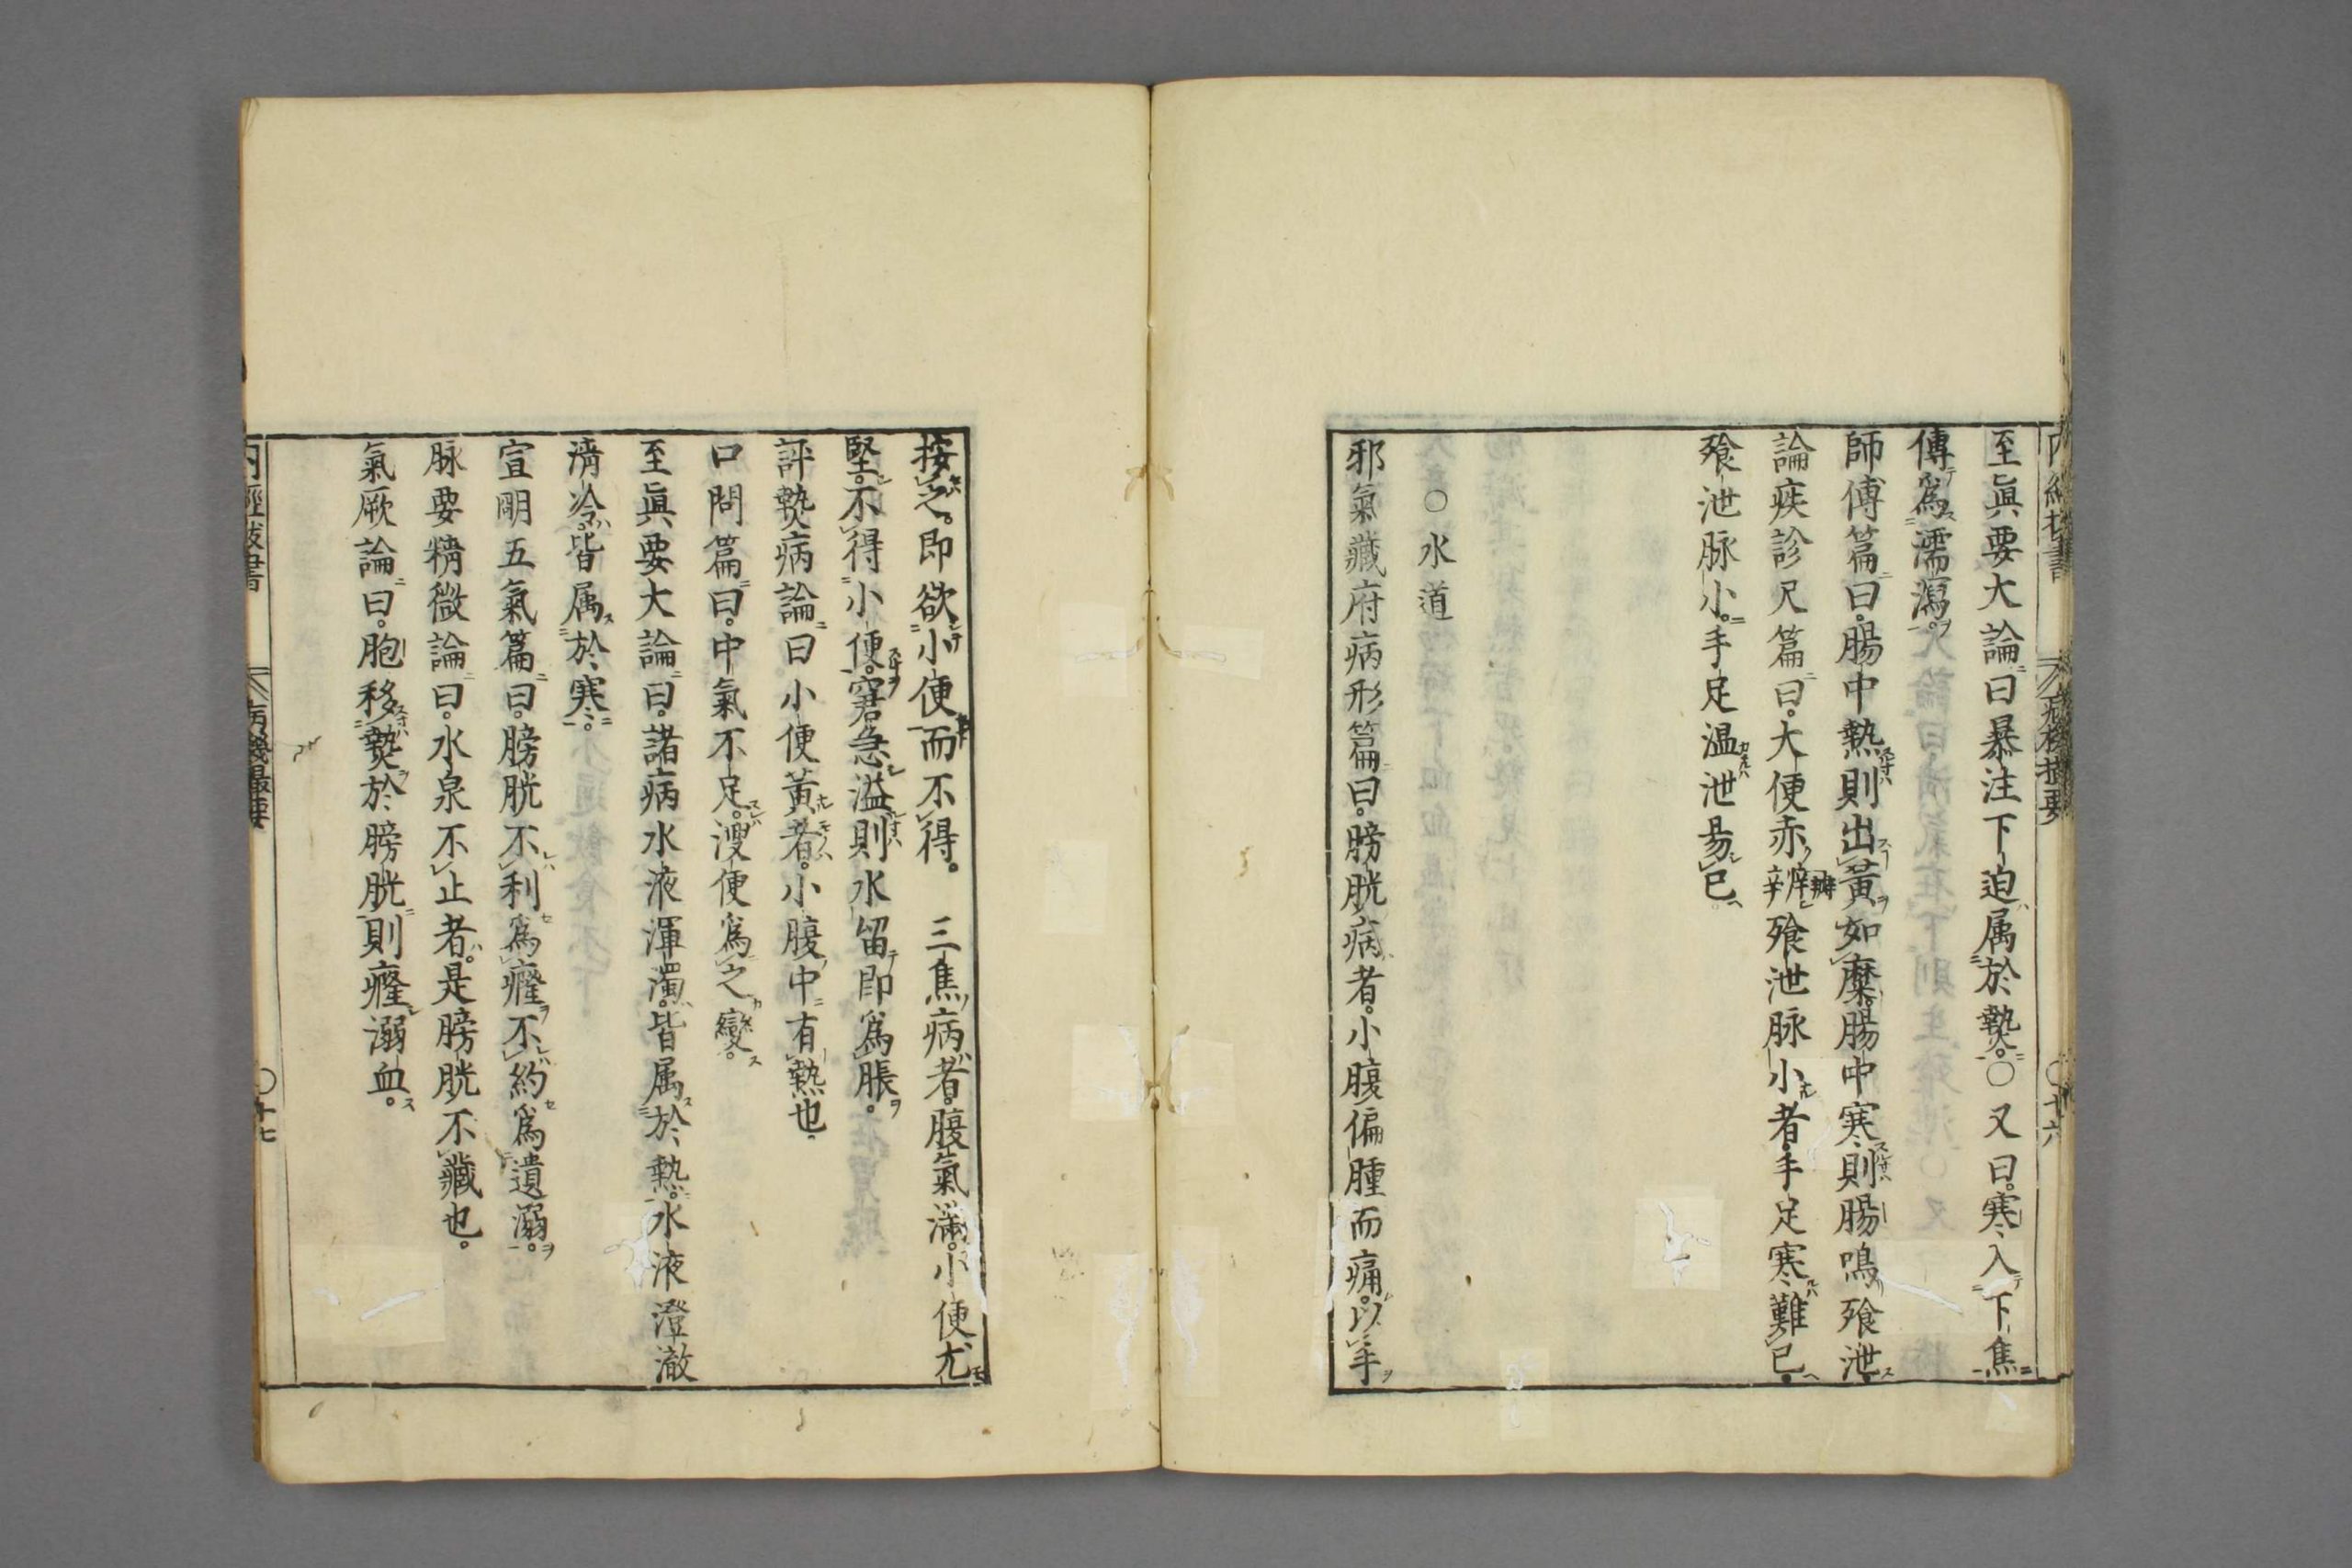 至眞要大論曰暴注下迫属於熱。○又曰。寒入下焦
傳爲濡瀉。
師傅篇曰。腸中熱則出黃如糜。腸中寒則腸鳴飱泄。
論疾診尺篇曰。大便赤辨飱泄脉小者。手足寒難已。
飱泄脉小。手足温泄易已
○水道
邪氣藏府病形篇曰。膀胱病者。小腹偏腫而痛。以手
按之。即欲小便而不得。三焦病者。腹氣滿。小便尤
堅。不得小便。窘急溢則水留即爲脹。
評熱病論曰小便黃者。小腹中有熱也
口問篇曰。中氣不足。溲便爲之變。
至眞要大論曰。諸病水液渾濁。皆属於熱。水液澄澈
清冷。皆属於寒。
宣明五氣篇曰。膀胱不利爲癃。不約爲遺溺。
脉要精微論曰。水泉不止者。是膀胱不藏也。
氣厥論曰。胞移熱於膀胱。則癃溺血。
○十七